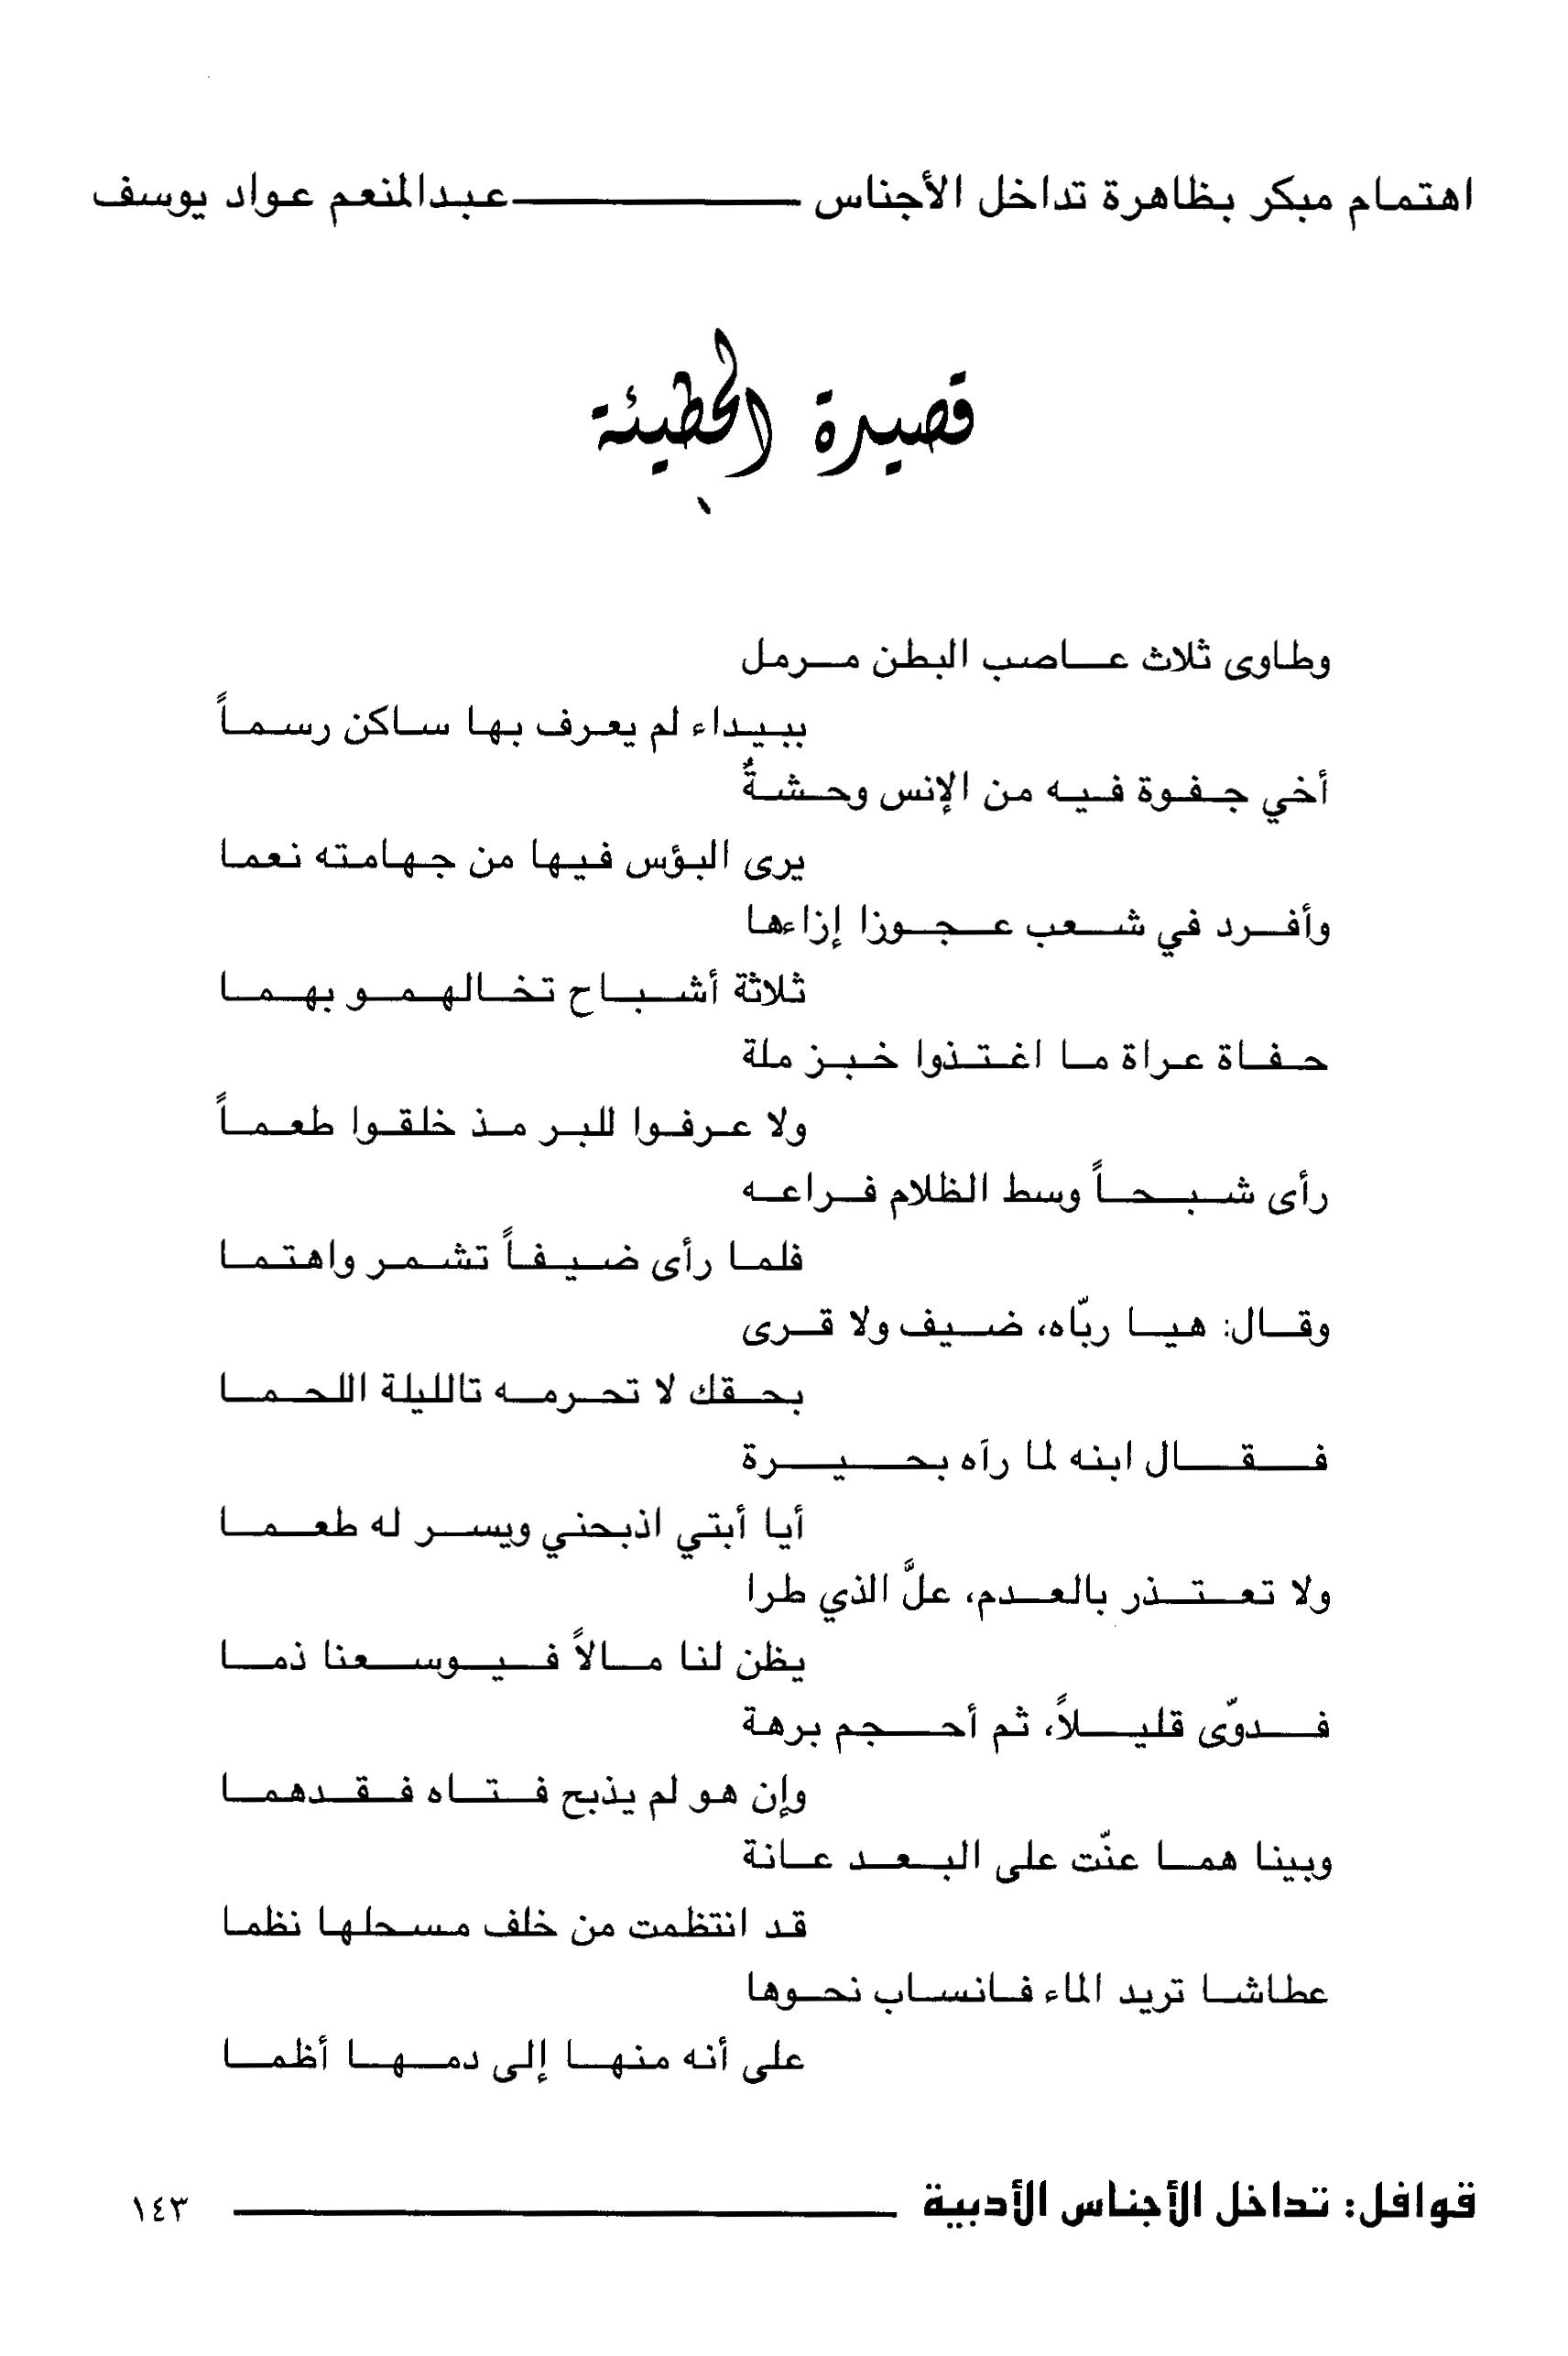 اهتمام مبكر بظاهرة تداخل الأجناس عبدالمنعم عواد يوسف
قصيدة الحطيئة
وطاوى ثلاث عاصب البطن مرمل
ببيداء لم يعرف بها ساكن رسماً
أخي جفوة فيه من الإنس وحشةٌ
يرى البؤس فيها من جهامته نعما
وأفرد في شعب عجوزا إزاءها
ثلاثة أشباح تخالهمو بهما
حفاة عراة ما اغتذوا خبز ملة
ولا عرفوا للبر مذ خلقوا طعماً
رأى شبحاً وسط الظلام فراعه
فلما رأى ضيفاً تشمر واهتما
وقال: هيا ربّاه، ضيف ولا قرى
بحقك لا تحرمه تالليلة اللحما
فقال ابنه لما رآه بحيرة
أيا أبتي اذبحني ويسر له طعما
ولا تعتذر بالعدم، علَّ الذي طرا
يظن لنا مالاً فيوسعنا ذما
فدوّى قليلاً، ثم أحجم برهة
وإن هو لم يذبح فتاه فقدهما
وبينا هما عنّت على البعد عانة
قد انتظمت من خلف مسحلها نظما
عطاشا تريد الماء فانساب نحوها
على أنه منها إلى دمها أظما
قوافل: تداخل الأجناس الأدبية ١٤٣